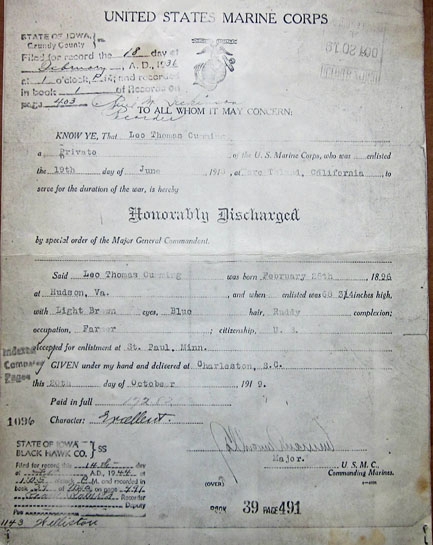 UNITED STATES MARINE CORPS
STATE OF IOWA,
Grundy County
Filed for record the 18 day of
February A. D., 1936
at 1 o'clock, P. M. and recorded
in book 1 of Records on
page 403
Recorder
TO ALL WHOM IT MAY CONCERN:
KNOW YE, That Leo Thomas Cumming
a Private of the U. S. Marine Corps, who was enlisted
the 19th day of June 191 , at Island, California, to
serve for the duration of the war, is hereby
Honorably Discharged
by special order of the Major General Commandant.
Said Leo Thomas Cumming was born February 28th 1896
at Hudson, Va. , and when enlisted was 68 3/4 inches high,
with Light Brown eyes, Blue hair, Ruddy complexion;
occupation, Farmer ; citizenship, U. S.
Accepted for enlistment at St. Paul, Minn.
Indexed
Compared
Paged
GIVEN under my hand and delivered at Charleston, S.C.
this 20th day of October 1919.
Paid in full
Character: Excellent.
1096
STATE OF IOWA
BLACK HAWK CO. } SS
Filed for record this 14 day
of A. D., 1944 at
M. and recorded in
book 39 of on page 491
Recorder
Deputy
Fee
Major.
U. S. M. C.
Commanding Marines.
(OVER)
BOOK 39 PAGE 491
1143 Williston